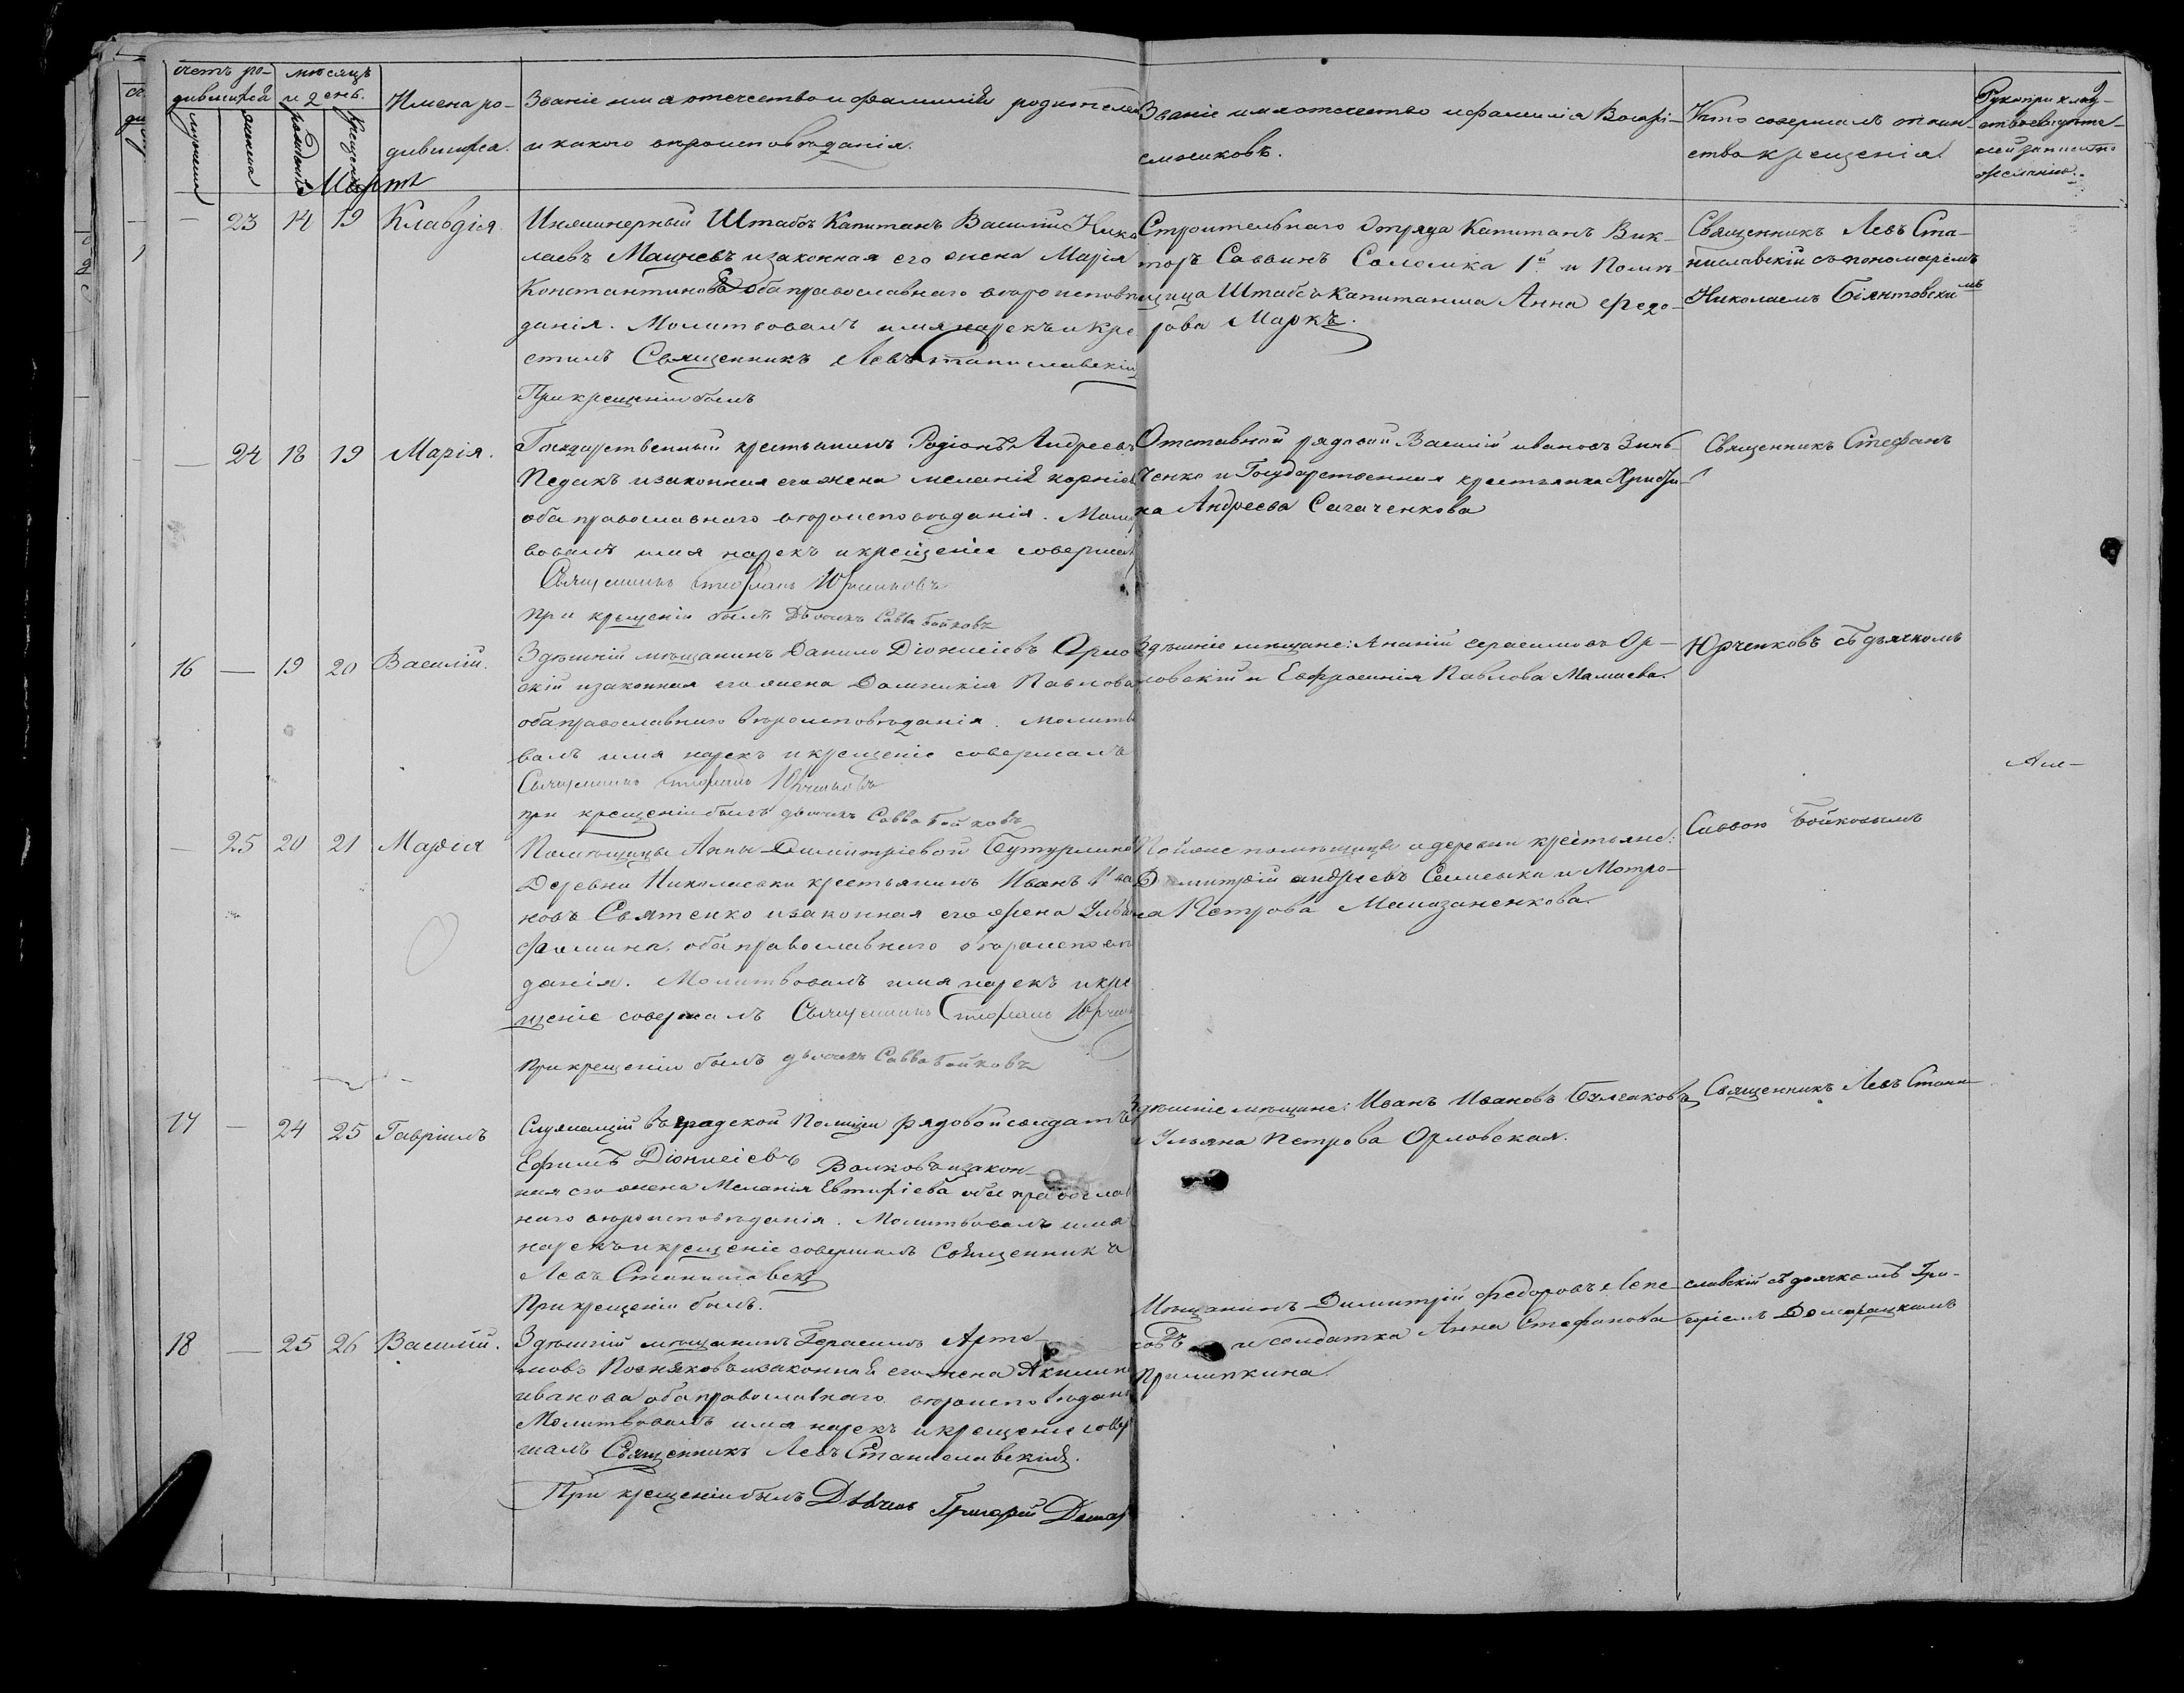 Счетъ ро-
дившихся
мужеска
женска
мѣсяцъ
и день.
рожденія
крещенія
Имена ро-
дившихся.
Званіе имя отечество и фамилія родителей
и какого вѣроисповѣданія.
Званіе имя отечество и фамилія Воспрі-
емниковъ.
Кто совершалъ таин-
ство крещенія
Рукоприклад-
ство свидѣте-
лей записи по
желанію.
Мартъ
— 23 14 19 Клавдія.
Инженерный Штабсъ Капитанъ Василій Нико
лаевъ Мацневъ и законная его жена Марія
Константинова оба православнаго вѣроисповѣ
данія. Молитвовалъ имя нарекъ и кре
стилъ Священникъ Левъ Станиславскій
При крещеніи былъ
Строительнаго Отряда Капитанъ Вик-
торъ Саввинъ Соломка 1й и Помѣ-
щица Штабсъ Капитанша Анна Федо-
рова Маркъ.
Священникъ Левъ Ста-
ниславскій съ пономаремъ
Николаемъ Біянтовскимъ
— 24 18 19 Марія.
Государственный крестьянинъ Родіонъ Андреевъ
Педикъ и законная его жена Меланія Корніе
оба православнаго вѣроисповѣданія. Моли
вовалъ имя нарекъ и крещеніе соверша
Священникъ Стефанъ Юрченковъ
При крещеніи былъ Дьячекъ Савва Бойковъ
Отставной рядовой Василій Ивановъ Зинь-
ченко и Государственная крестьянка Христи-
на Андреева Сагаченкова
Священникъ Стефанъ
16 — 19 20 Василій.
Здѣшній мѣщанинъ Данило Діонисіевъ Орло
скій и законная его жена Домникія Павлова
оба православнаго вѣроисповѣданія. Молитв
валъ имя нарекъ и крещеніе совершалъ
Священникъ Стефанъ Юрченковъ
При крещеніи былъ дьячекъ Савва Бойковъ
Здѣшніе мѣщане: Ананій Герасимовъ Ор-
ловскій и Евфросинія Павлова Мамаева.
Юрченковъ съ дьячкомъ
— 25 20 21 Марія
Помѣщицы Анны Димитріевой Бутурлино
Деревни Николаевки крестьянинъ Иванъ Ива
новъ Святенко и законная его жена Улья
Фомина. оба православнаго вѣроисповѣ
данія. Молитвовалъ имя нарекъ и кре
щеніе совершалъ Священникъ Стефанъ Юрчен
При крещеніи былъ дьячекъ Савва Бойковъ
Той же помѣщицы и деревни крестьяне:
Димитрій Андреевъ и Мотро-
на Петрова
Саввою Бойковымъ
17 — 24 25 Гавріилъ
Служащій въ градской Полиціи рядовой солдатъ
Ефимъ Діонисіевъ Волковъ и закон-
ная его жена Меланія Евтифіева оба православ
наго вѣроисповѣданія. Молитвовалъ имя
нарекъ и крещеніе совершилъ Священникъ
Левъ Станиславск
При крещеніи былъ.
Здѣшніе мѣщане: Иванъ Ивановъ Булгаковъ
и Ульяна Петрова Орловская.
Священникъ Левъ Стани
18 — 25 26 Василій.
Здѣшній мѣщанинъ Герасимъ Арте-
мовъ Позняковъ и законная его жена Акилина
Иванова оба православнаго вѣроисповѣдані
Молитвовалъ имя нарекъ и крещеніе совер
шалъ Священникъ Левъ Станиславскій.
При крещеніи былъ Дьячекъ Григорій Домар
Мѣщанинъ Димитрій Федоровъ Лепе
ховъ и солдатка Анна Стефанова
Прилипкина
славскій съ дьячкомъ Гри-
горіемъ Домарацкимъ